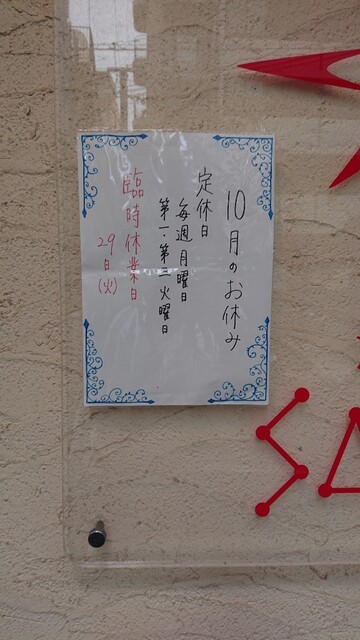 10月のお休み
定休日
毎週月曜日
第一・第三火曜日
臨時休業日
29日(火)
S